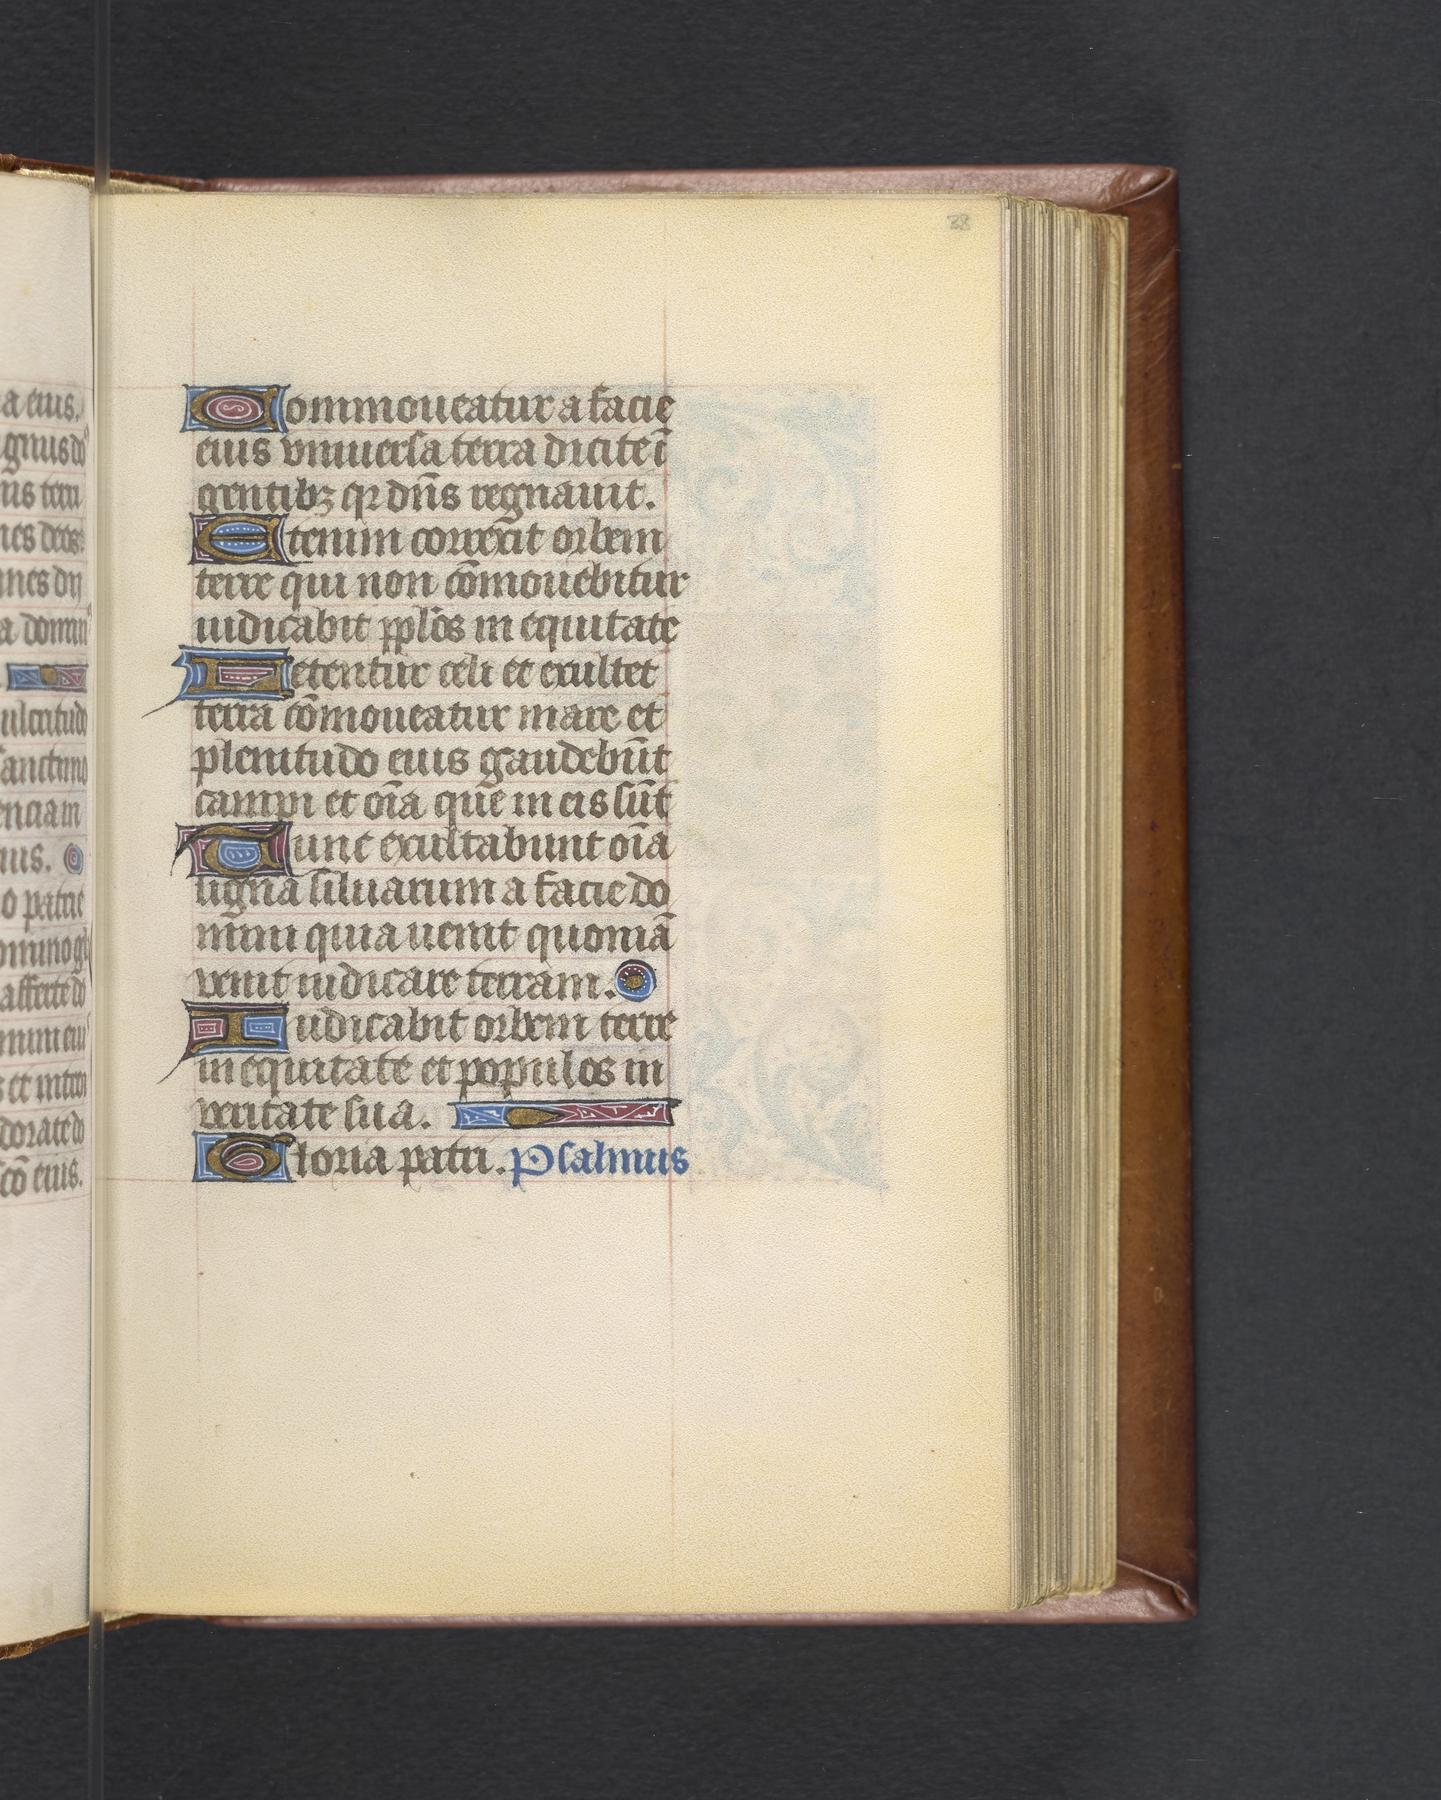 38
a eius.
gnus do
nis terri
nes deos
nnes dij
a domin
ulcritudo
enciam
o patrie
afferte do
dorate do
scō eius.
Commoueatur a facie
eius vniuersa terra dicite ī
gentibꝫ qꝛ dn̄s regnauit.
Etenim correxit orbem
terre qui non cōmouebitur
iudicabit ppl̄os in equitate
Letentur celi et exultet
terra cōmoueatur mare et
plenitudo eius gaudebūt
campi et oīa que in eis sūt
Tunc exultabunt oīa
ligna siluarum a facie do
mini quia uenit quoniā
venit iudicare terram.
Iudicabit orbem terre
in equitate et populos in
veritate sua.
Gloria patri. Psalmus